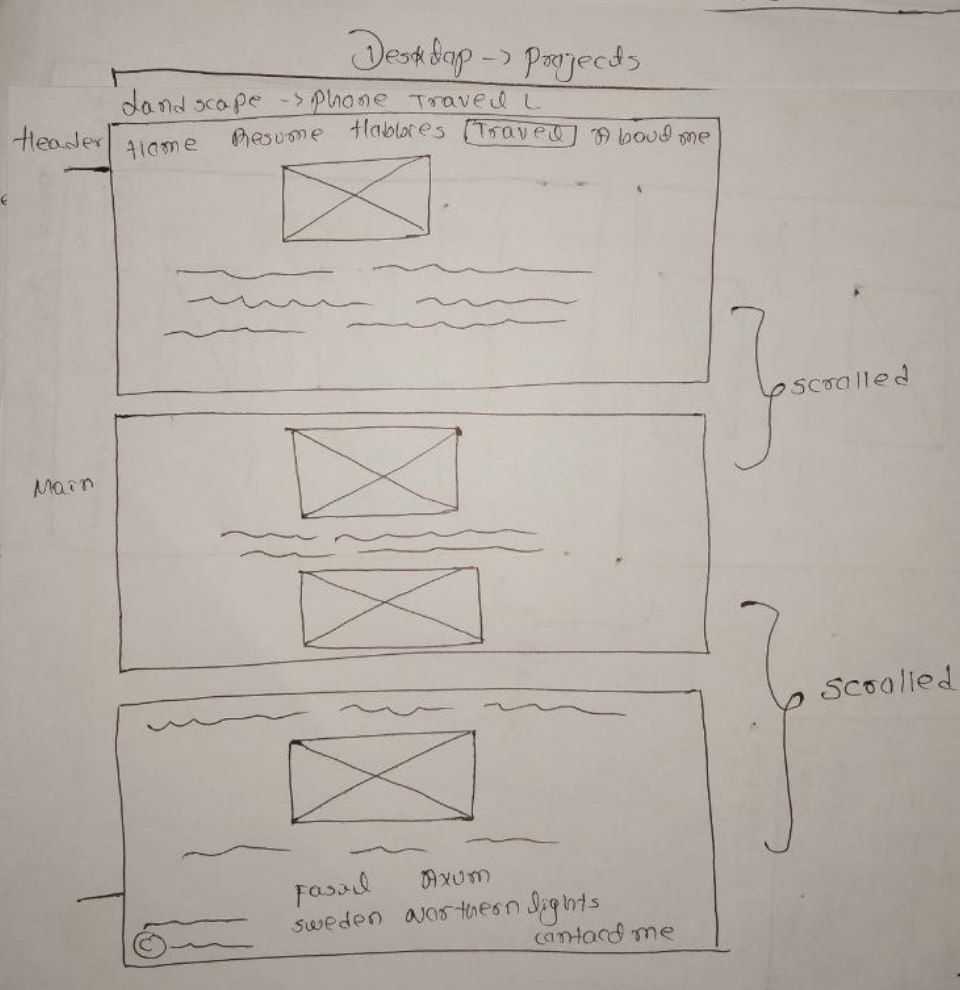 Desktop -> Projects
Landscape -> phone Travel L
Header
Home Resume Hablores Travel About me
scrolled
Main
scrolled
Fasil Axum
Sweden Northern lights
Contact me
©